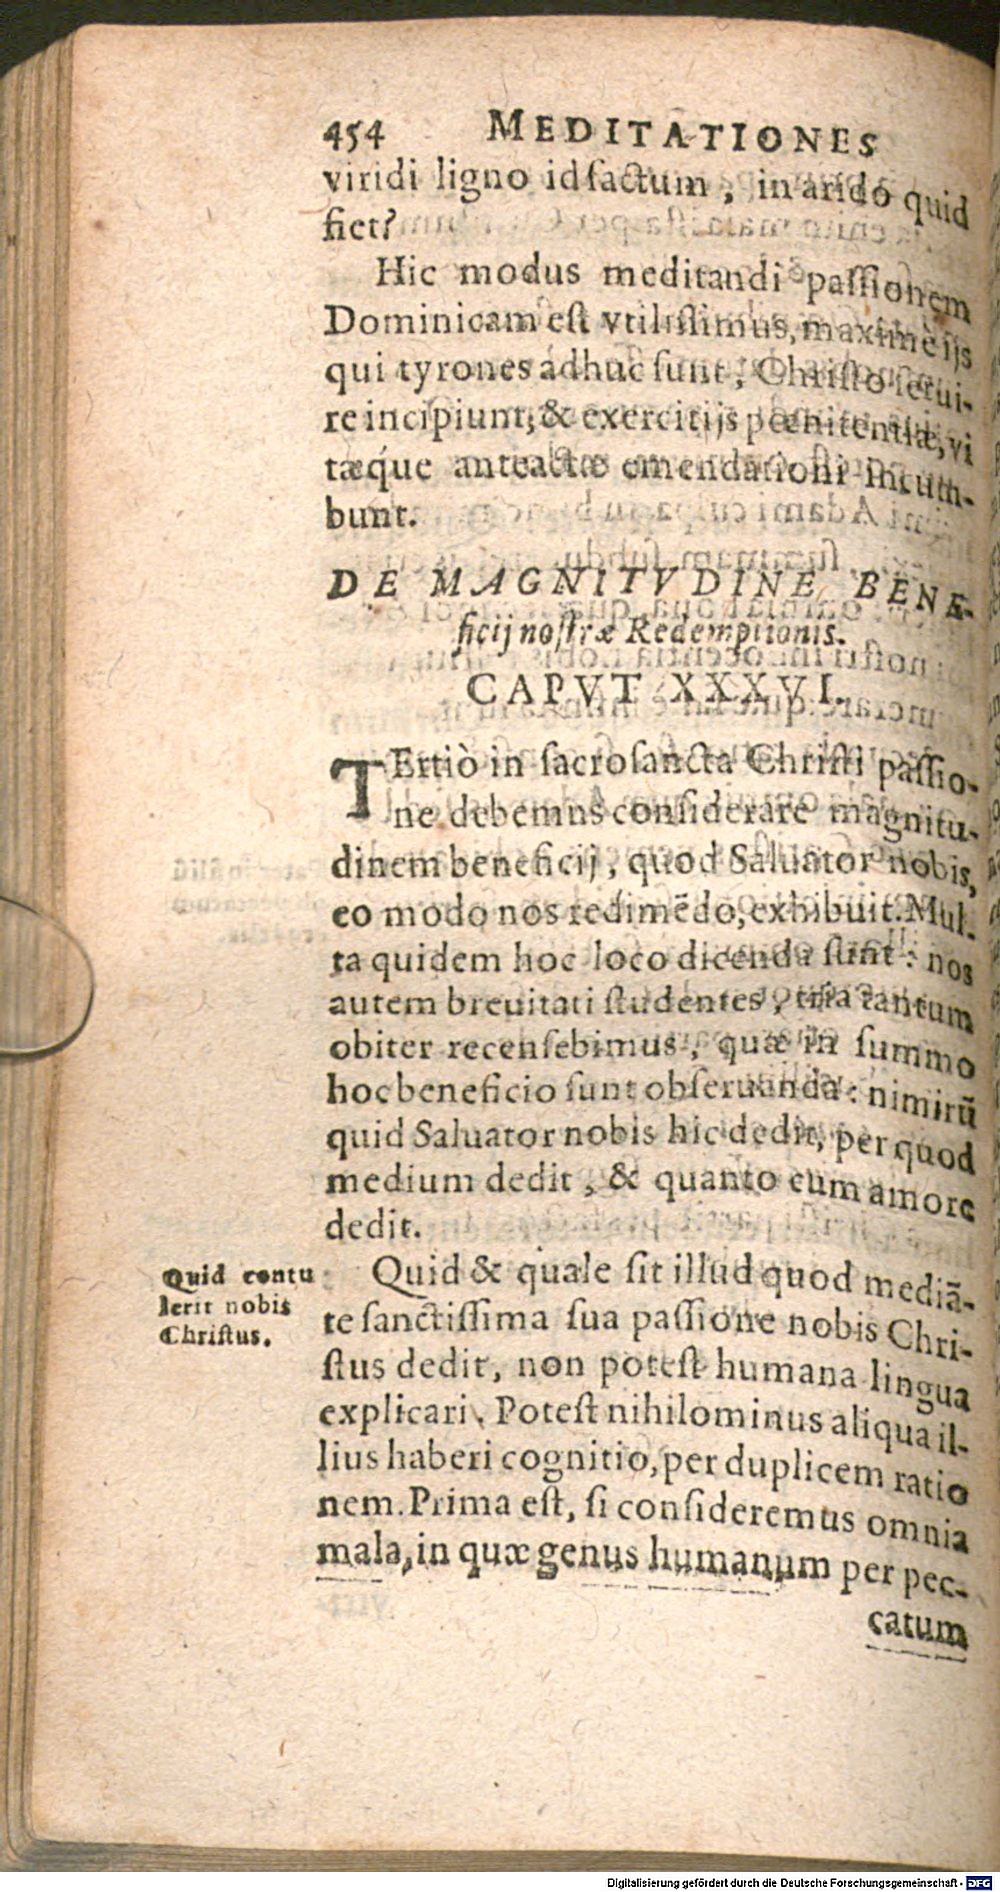 454 MEDITATIONES
viridi ligno id factum, in arido quid
fiet?
Hic modus meditandi passionem
Dominicam est vtilissimus, maximè ijs
qui tyrones adhuc sunt, Christo serui-
re incipiunt, & exercitijs pœnitentiæ, vi
tæque anteactæ emendationi incum-
bunt.
DE MAGNITVDINE BENE-
ficij nostræ Redemptionis.
CAPVT XXXVI.
TErtiò in sacrosancta Christi passio-
ne debemus considerare magnitu-
dinem beneficij, quod Saluator nobis,
eo modo nos redimēdo, exhibuit. Mul-
ta quidem hoc loco dicenda sunt: nos
autem breuitati studentes, tria tantum
obiter recensebimus, quæ in summo
hoc beneficio sunt obseruanda: nimirū
quid Saluator nobis hic dedit, per quod
medium dedit, & quanto cum amore
dedit.
Quid contu
lerit nobis
Christus.
Quid & quale sit illud quod mediā-
te sanctissima sua passione nobis Chri-
stus dedit, non potest humana lingua
explicari. Potest nihilominus aliqua il-
lius haberi cognitio, per duplicem ratio
nem. Prima est, si consideremus omnia
mala, in quæ genus humanum per pec-
catum
Digitalisierung gefördert durch die Deutsche Forschungsgemeinschaft - DFG